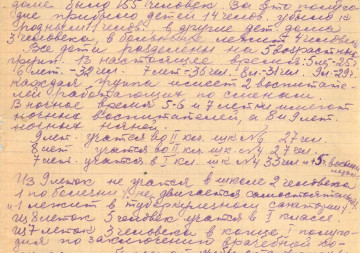 доме было 155 человек. За это полуго-
дие прибыло детей 14 человек, убыло
1 человек. в другие дет. дома
3 человека, в больнице лежит 1 человек
Все дети разделены на 5 возрастных
групп. В настоящее время: 5 лет -25
6 лет -32 чел 7 лет -36 чел 8 л -31 чел. 9 л -29
каждая группа имеет 2 воспитате-
лей работающих по сменам.
В ночное время 5-6 и 7 летки имеют
ночных воспитателей, а 8 и 9 лет.
ночных нянь.
9 лет. учатся во II кл. шк №4 27 чел.
8 лет учатся во II кл. шк №4 27 чел
7 лет учатся в I кл. шк №4 33 чел + 5
Из 9 леток не учатся в школе 2 человека
1 по болезни (не двигается самостоятельно)
1 лежит в туберкулезном санатории.
из 8 леток 5 человек учатся в I классе.
из 7 леток 3 человека в конце I полуго-
дия по заключению врачебной ко-